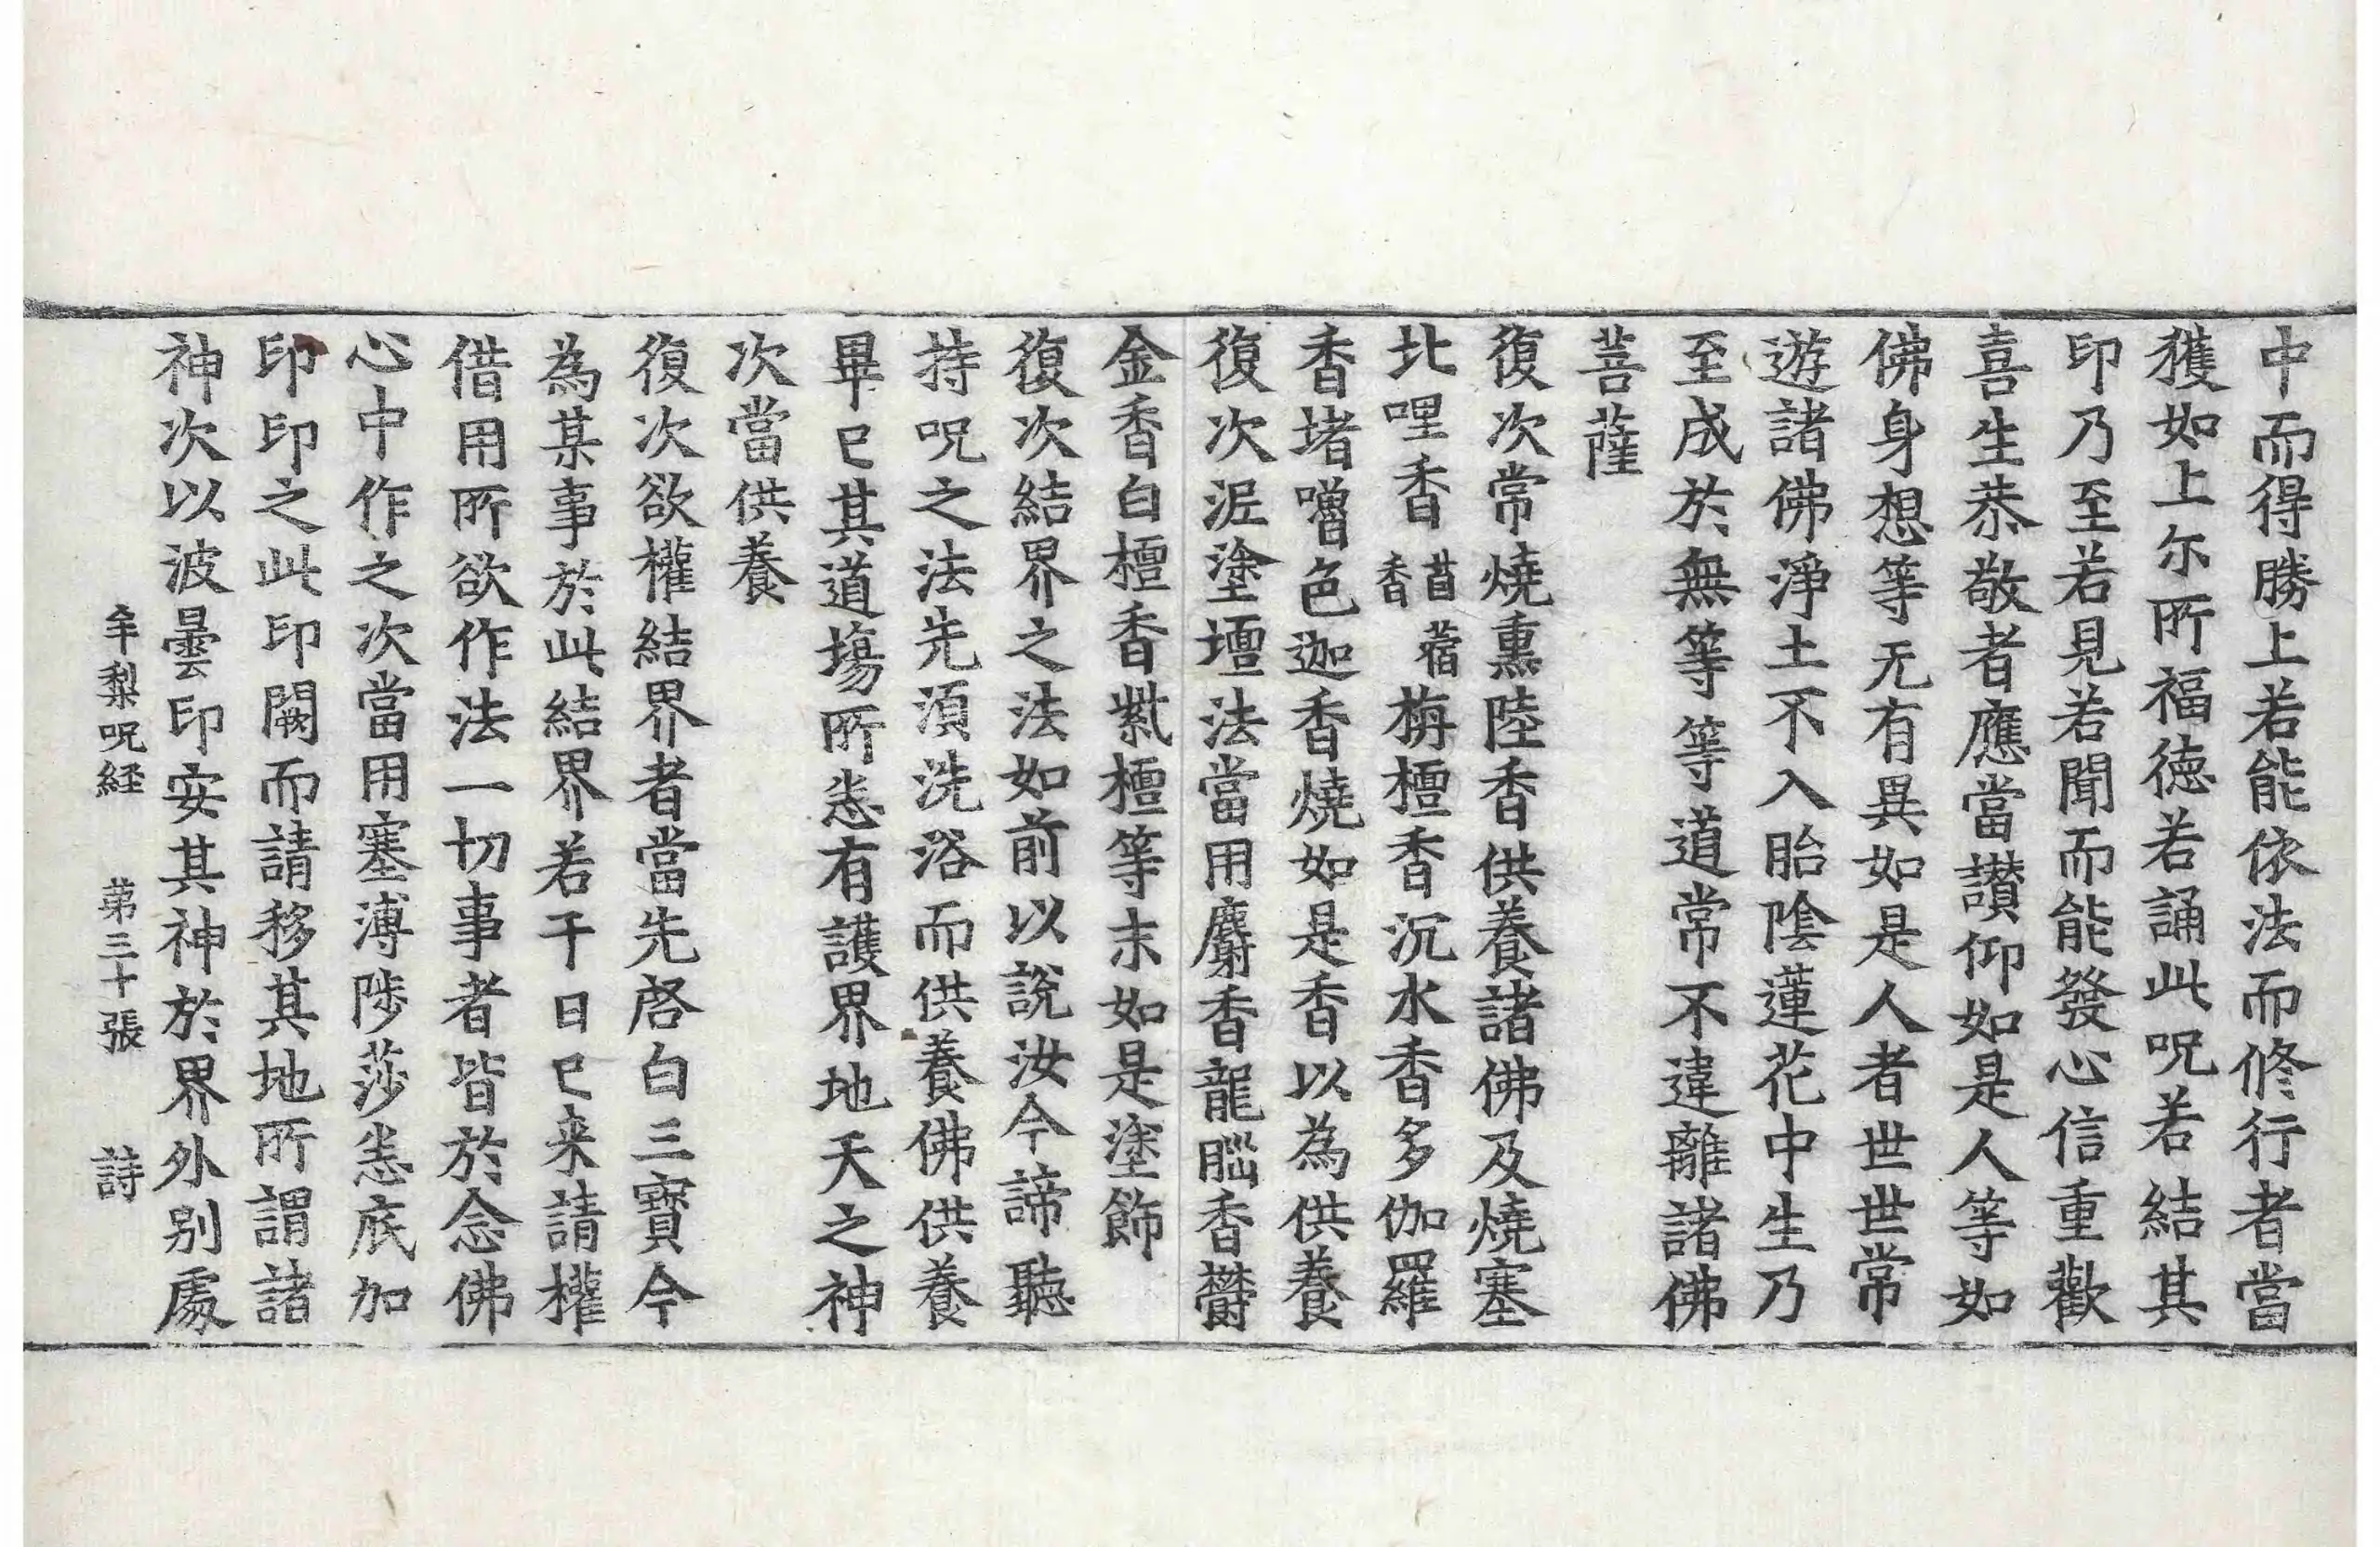 中而得勝上若能依法而修行者當
獲如上尓所福德若誦此呪若結其
印乃至若見若聞而能發心信重歡
喜生恭敬者應當讃仰如是人等如
佛身想等无有異如是人者世世常
遊諸佛淨土不入胎陰蓮花中生乃
至成於無等等道常不違離諸佛
菩薩
復次常燒熏陸香供養諸佛及燒塞
北哩香苜蓿香栴檀香沉水香多伽羅
香堵嚕色迦香燒如是香以為供養
復次泥塗壇法當用麝香龍腦香欎
金香白檀香紫檀等末如是塗飾
復次結界之法如前以說汝今諦聽
持呪之法先湏洗浴而供養佛供養
畢已其道塲所悉有護界地天之神
次當供養
復次欲權結界者當先啓白三寶今
為某事於此結界若干日已来請權
借用所欲作法一切事者皆於念佛
心中作之次當用塞溥陟莎悉底加
印印之此印闕而請移其地所謂諸
神次以波曇印安其神於界外别處
牟梨呪経 苐三十張 詩